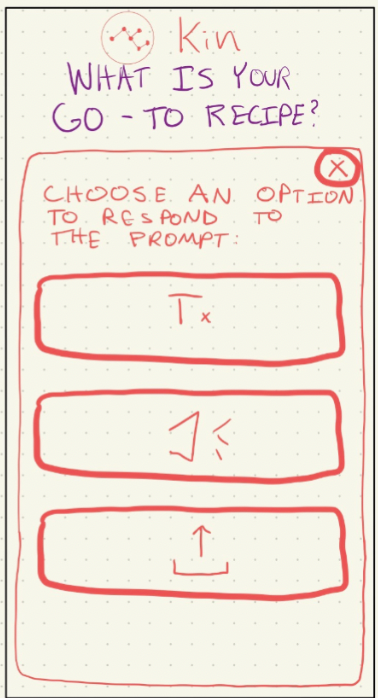 Kin
WHAT IS YOUR
GO - TO RECIPE?
X
CHOOSE AN OPTION
TO RESPOND TO
THE PROMPT:
Tx